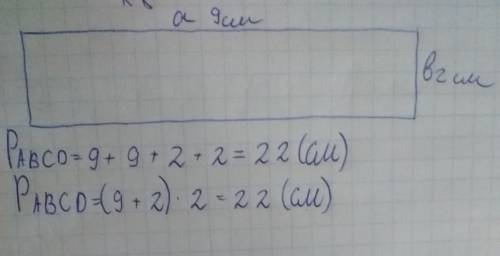 a 9см
в 2 см
PABCD = 9 + 9 + 2 + 2 = 22 (см)
PABCD = (9 + 2) · 2 = 22 (см)